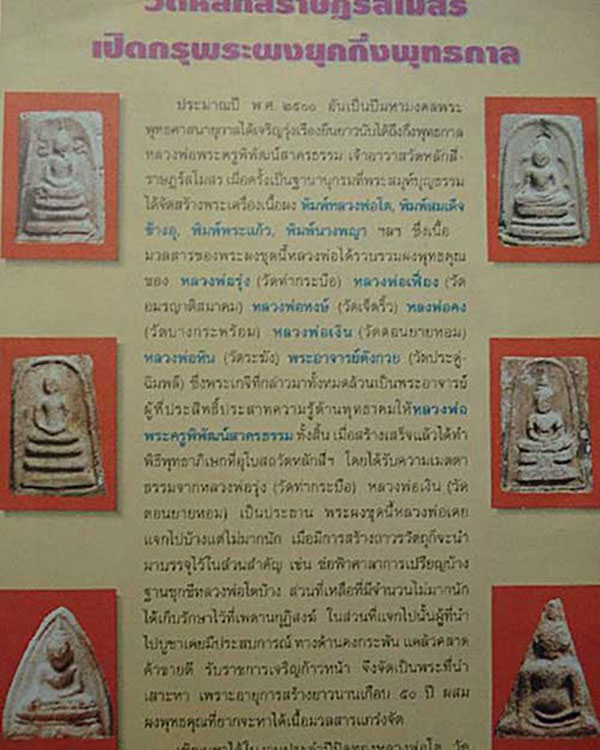 วัดหลักสี่ราษฎร์สโมสร
เปิดกรุพระผงยุคกึ่งพุทธกาล
ประมาณปี พ.ศ. ๒๕๐๐ อันเป็นปีมหามงคลพระ
พุทธศาสนายุกาลได้เจริญรุ่งเรืองยืนยาวนับได้ถึงกึ่งพุทธกาล
หลวงพ่อพระครูพิพัฒน์สาครธรรม เจ้าอาวาสวัดหลักสี่-
ราษฎร์สโมสร เมื่อครั้งเป็นฐานานุกรมที่พระสมุห์บุญธรรม
ได้จัดสร้างพระเครื่องเนื้อผง พิมพ์หลวงพ่อโต, พิมพ์สมเด็จ
ข้างอุ, พิมพ์พระแก้ว, พิมพ์นางพญา ฯลฯ ซึ่งเนื้อ
มวลสารของพระผงชุดนี้หลวงพ่อได้รวบรวมผงพุทธคุณ
ของ หลวงพ่อรุ่ง (วัดท่ากระบือ) หลวงพ่อเฟื่อง (วัด
อมรญาติสมาคม) หลวงพ่อหงษ์ (วัดเจ็ดริ้ว) หลงพ่อคง
(วัดบางกระพร้อม) หลวงพ่อเงิน (วัดดอนยายหอม)
หลวงพ่อหิน (วัดระฆัง) พระอาจารย์ตังกวย (วัดประดู่-
ฉิมพลี) ซึ่งพระเกจิที่กล่าวมาทั้งหมดล้วนเป็นพระอาจารย์
ผู้ที่ประสิทธิ์ประสาทความรู้ด้านพุทธาคมให้หลวงพ่อ
พระครูพิพัฒน์สาครธรรม ทั้งสิ้น เมื่อสร้างเสร็จแล้วได้ทำ
พิธีพุทธาภิเษกที่อุโบสถวัดหลักสี่ฯ โดยได้รับความเมตตา
ธรรมจากหลวงพ่อรุ่ง (วัดท่ากระบือ) หลวงพ่อเงิน (วัด
ดอนยายหอม) เป็นประธาน พระผงชุดนี้หลวงพ่อเคย
แจกไปบ้างแต่ไม่มากนัก เมื่อมีการสร้างถาวรวัตถุก็จะนำ
มาบรรจุไว้ในส่วนสำคัญ เช่น ช่อฟ้าศาลาการเปรียญบ้าง
ฐานชุกชีหลวงพ่อโตบ้าง ส่วนที่เหลือที่มีจำนวนไม่มากนัก
ได้เก็บรักษาไว้ที่เพดานกุฏิสงฆ์ ในส่วนที่แจกไปนั้นผู้ที่นำ
ไปบูชาเคยมีประสบการณ์ ทางด้านคงกระพัน แคล้วคลาด
ค้าขายดี รับราชการเจริญก้าวหน้า จึงจัดเป็นพระที่น่า
เสาะหา เพราะอายุการสร้างยาวนานเกือบ ๕๐ ปี ผสม
ผงพุทธคุณที่ยากจะหาได้เนื้อมวลสารแกร่งจัด